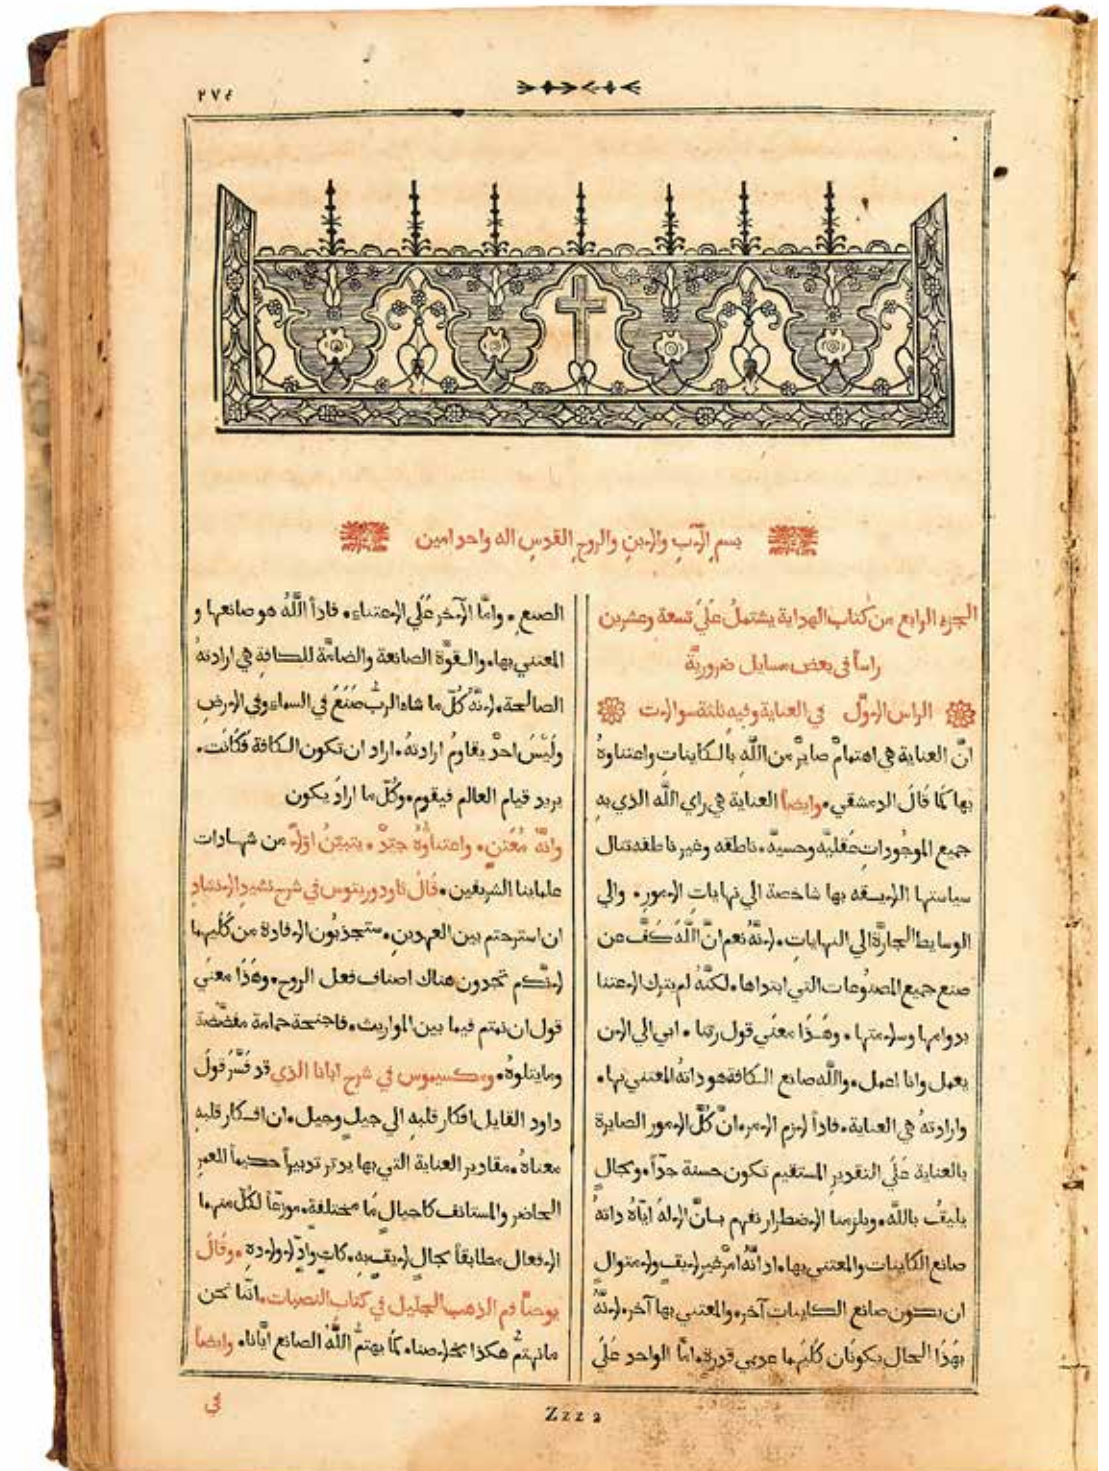 ٢٧٤
بسم الآب والابن والروح القدس اله واحد امين
الجزء الرابع من كتاب الهداية يشتمل علَي تسعة وعشرين
راساً في بعض مسايل ضروريَّة
الراس الاوَّل في العناية وفيه ثلثة سوالات
انَّ العناية هي اهتمامٌ صايرٌ من اللَّه بالكاينات واعتناوهُ
بها كما قالَ الدمشقي. وايضاً العناية هي راي اللَّه الذي به
جميع الموجُودات عقليَّه وحسيَّه. ناطقه وغير ناطقه تنال
سياستها اللايقه بها شاخصة الي نهايات الامور. والي
الوسايط الجارَّة الي النهايات. لانَّهُ نعم انَّ اللَّهَ كَفَّ عن
صنع جميع المصنُوعات التي ابتداها. لكنَّهُ لم يترك الاعتنا
بدوامها وسلامتها. وهَذَا معنَي قول ربّنا. ابي الي الان
يعمل وانا اعمل. واللَّه صانع الكافة هو داتهُ المعتني بها.
وارادتهُ هي العناية. فاداً لازم الامر. انَّ كُلَّ الامور الصايرة
بالعناية عَلَي التقدير المستقيم تكون حسنة جدّاً. وبحالٍ
يليقُ باللَّه. ويلزمنا الاضطرار نفهم بانَّ الالهَ ايّاهُ داتهُ
صانع الكاينات والمعتني بها. اد انَّهُ امرٌ غير لايقٍ ولا متوالٍ
ان يكون صانع الكاينات آخر. والمعتني بها آخر. لانَّهُ
بهَذَا الحال يكونَان كُلَيهما عدمي قدرة. امَّا الواحد عَلَي
الصنع. وامَّا الآخر عَلَي الاعتناء. فاداً اللَّهُ هو صانعها و
المعتني بها. والقوَّة الصانعة والضامَّة للكافة هي ارادتهُ
الصالحة. لانَّهُ كُلّ ما شاه الربُّ صَنَعَ في السماء وفي الارض
ولَيْسَ احدٌ يقاومُ ارادتهُ. اراد ان تكون الكافة فكَانَت.
يريد قيام العالم فيقوم. وكُلّ ما ارادَ يكون
وانَّهُ مُعتَنٍ. واعتناوُهُ جيّدٌ. يتبيَّنُ اوّلاً من شهادات
علماينا الشريفين. قالَ تاودوريتوس في شرح نشيد الانشاد
ان استرحتم بين العهدين. ستجذبُون الافادة من كُلَيهما
لانَّكم تجدون هناك اصناف فعل الروح. وهَذَا معنَي
قول ان نمتم فيما بين المواريث. فاجنحة حمامة مفضَّضة
ومايتلوهُ. ومكسيموس في شرح ابانا الذي قد فَسَّرَ قولَ
داود القايل افكار قلبه الي جيلٍ وجيل. ان افكار قلبه
معناهُ. مقادير العناية التي بها يدبّر تدبيراً حكيماً العمر
الحاضر والمستانف كاجيالٍ مَّا مختلفة. موزّعاً لكُلّ منهما
الافعال مطابقاً بحالٍ لايقٍ به. كابٍ وادٍّ لاولاده. وقالَ
يوحنَّا فم الذهب الجليل في كتاب النصبات. انَّنا نحن
مانهتمُّ هكذا بخلاصنا. كما يهتمُّ اللَّهُ الصانع ايَّانا. وايضاً
في
Zzz 2